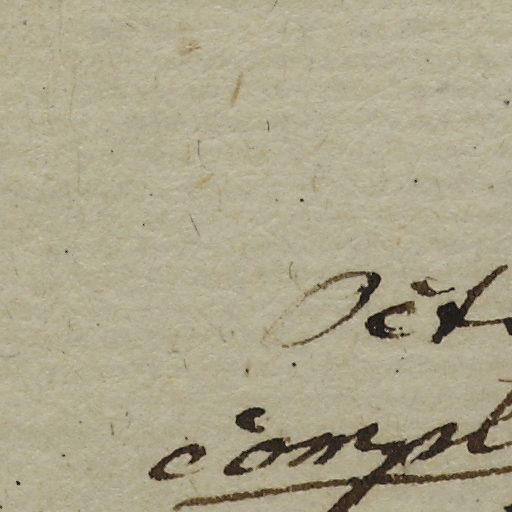 Oct
compl